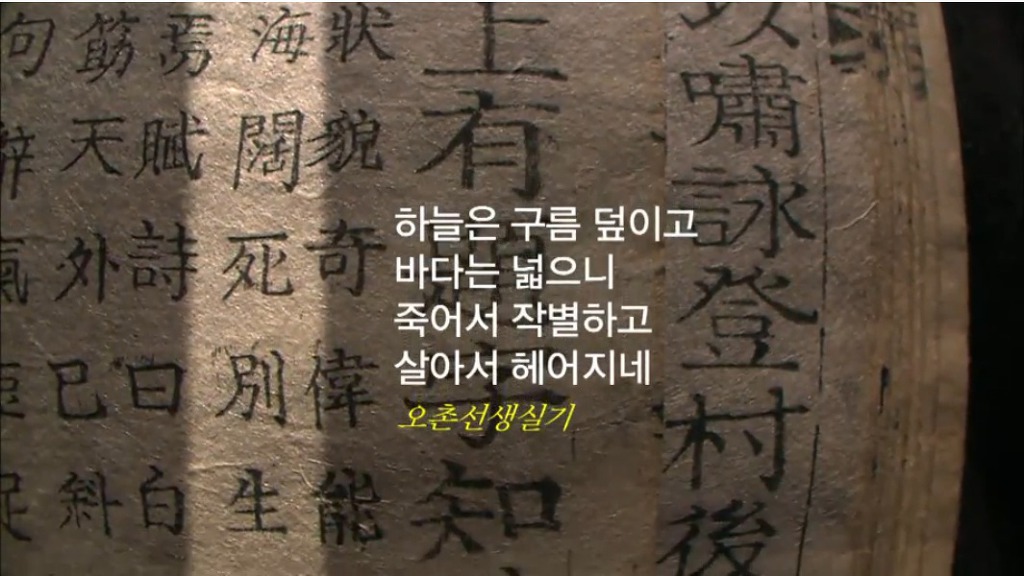 하늘은 구름 덮이고
바다는 넓으니
죽어서 작별하고
살아서 헤어지네
오촌선생실기
嘯詠登村後
上有知
狀貌奇偉能
海闊死別生
焉賦詩白白
天外已斜
句氣